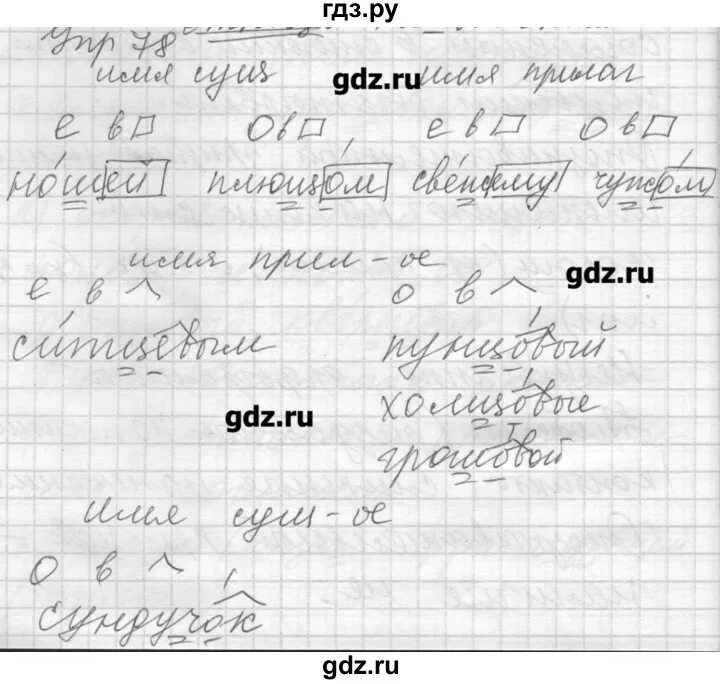 гдз.ру
Упр 78
имя сущ имя прилаг
gdz.ru
е в о в е в о в
ношей плющом свежему чужом
имя прил-ое
gdz.ru
е в о в
ситцевым пунцовый
холщовые
gdz.ru
грошовой
gdz.ru
имя сущ-ое
о в
сундучок
gdz.ru